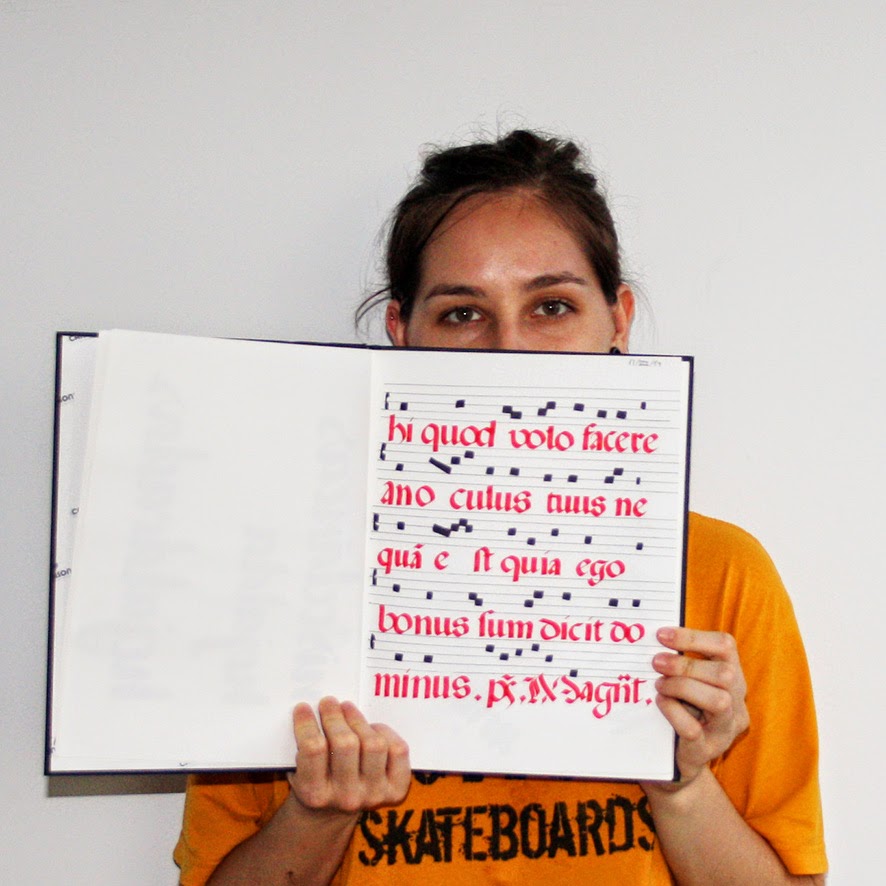 hi quod volo facere
ano culus tuus ne
quã e st quia ego
bonus ſum dicit do
minus. ps.
SKATEBOARDS